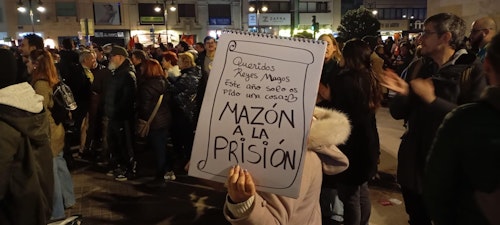 Queridos
Reyes Magos
Este año solo os
pido una cosa:
MAZÓN
A LA
PRISIÓN